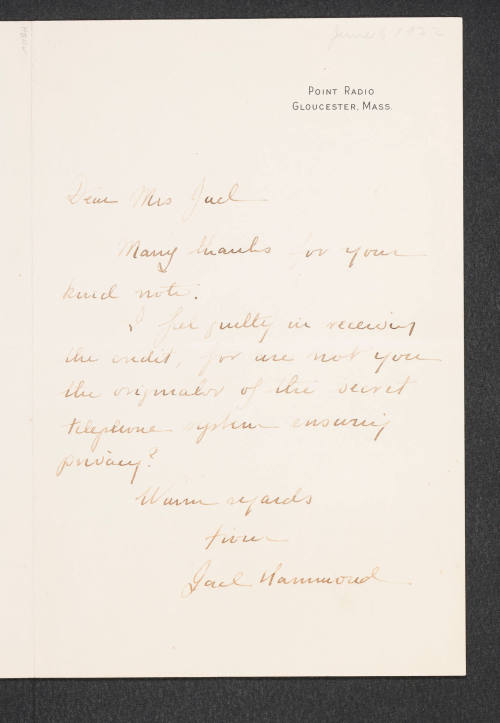 June 6 1922
POINT RADIO
GLOUCESTER, MASS.
Dear Mrs Jack
Many thanks for your
kind note.
I feel guilty in receiving
the credit, for are not you
the originator of the secret
telephone system ensuring
privacy?
Warm regards
from
Jack Hammond